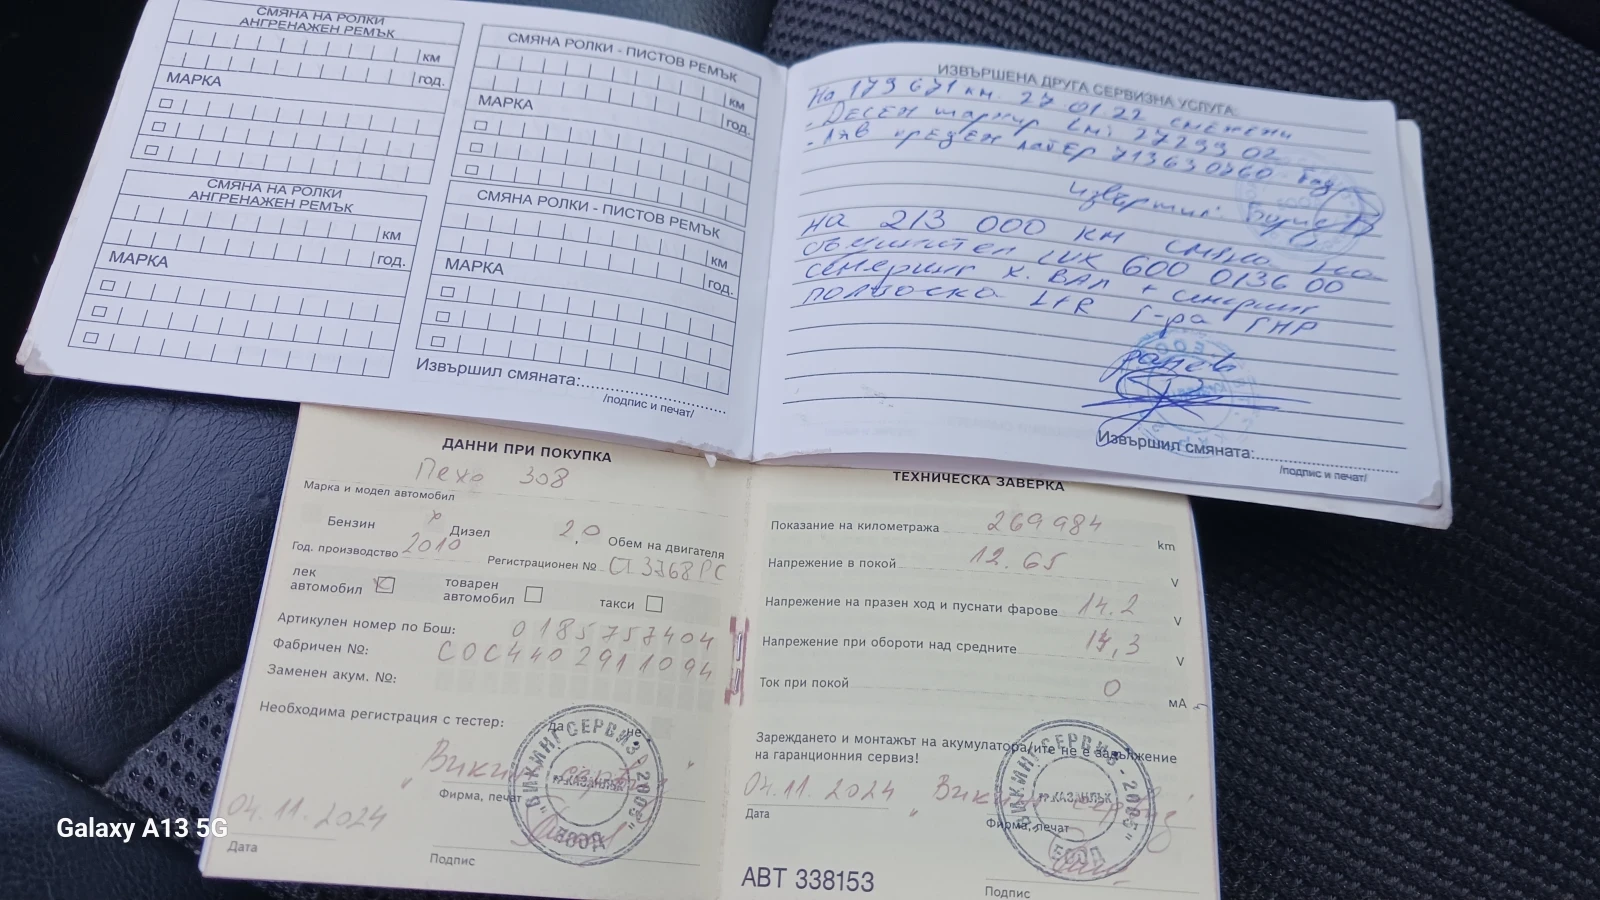 СМЯНА НА РОЛКИ
АНГРЕНАЖЕН РЕМЪК
км
год.
МАРКА
СМЯНА НА РОЛКИ
АНГРЕНАЖЕН РЕМЪК
км
год.
МАРКА
СМЯНА РОЛКИ - ПИСТОВ РЕМЪК
км
год.
МАРКА
СМЯНА РОЛКИ - ПИСТОВ РЕМЪК
км
год.
МАРКА
Извършил смяната:
/подпис и печат/
ИЗВЪРШЕНА ДРУГА СЕРВИЗНА УСЛУГА:
На 179 671 км. 27 01.22 сменени
- Десен шарнир
- Ляв преден лагер 713630760
Извършил:
на 213 000 км смяна на
съединител LUK 600 0136 00
семеринг К. ВАЛ + семеринг
полуоска L+R Г-ра ГНР
Извършил смяната:
/подпис и печат/
ДАННИ ПРИ ПОКУПКА
Пежо 308
Марка и модел автомобил
Бензин х Дизел 2,0 Обем на двигателя
Год. производство 2010 Регистрационен № СТ 3768 РС
лек автомобил товарен автомобил такси
Артикулен номер по Бош: 0185757404
Фабричен №: СОС4402911094
Заменен акум. №:
Необходима регистрация с тестер: да не
Фирма, печат
04.11.2024
Дата
Подпис
"ВИКИНГ СЕРВИЗ - 2005"
гр. КАЗАНЛЪК
ЕООД
ТЕХНИЧЕСКА ЗАВЕРКА
Показание на километража 269984 km
Напрежение в покой 12.65 V
Напрежение на празен ход и пуснати фарове 14.2 V
Напрежение при обороти над средните 14,3 V
Ток при покой 0 мА
Зареждането и монтажът на акумулатора/ите не е задължение
на гаранционния сервиз!
04.11.2024
Дата
Фирма, печат
"ВИКИНГ СЕРВИЗ - 2005"
гр. КАЗАНЛЪК
ЕООД
АВТ 338153
Подпис
Galaxy A13 5G